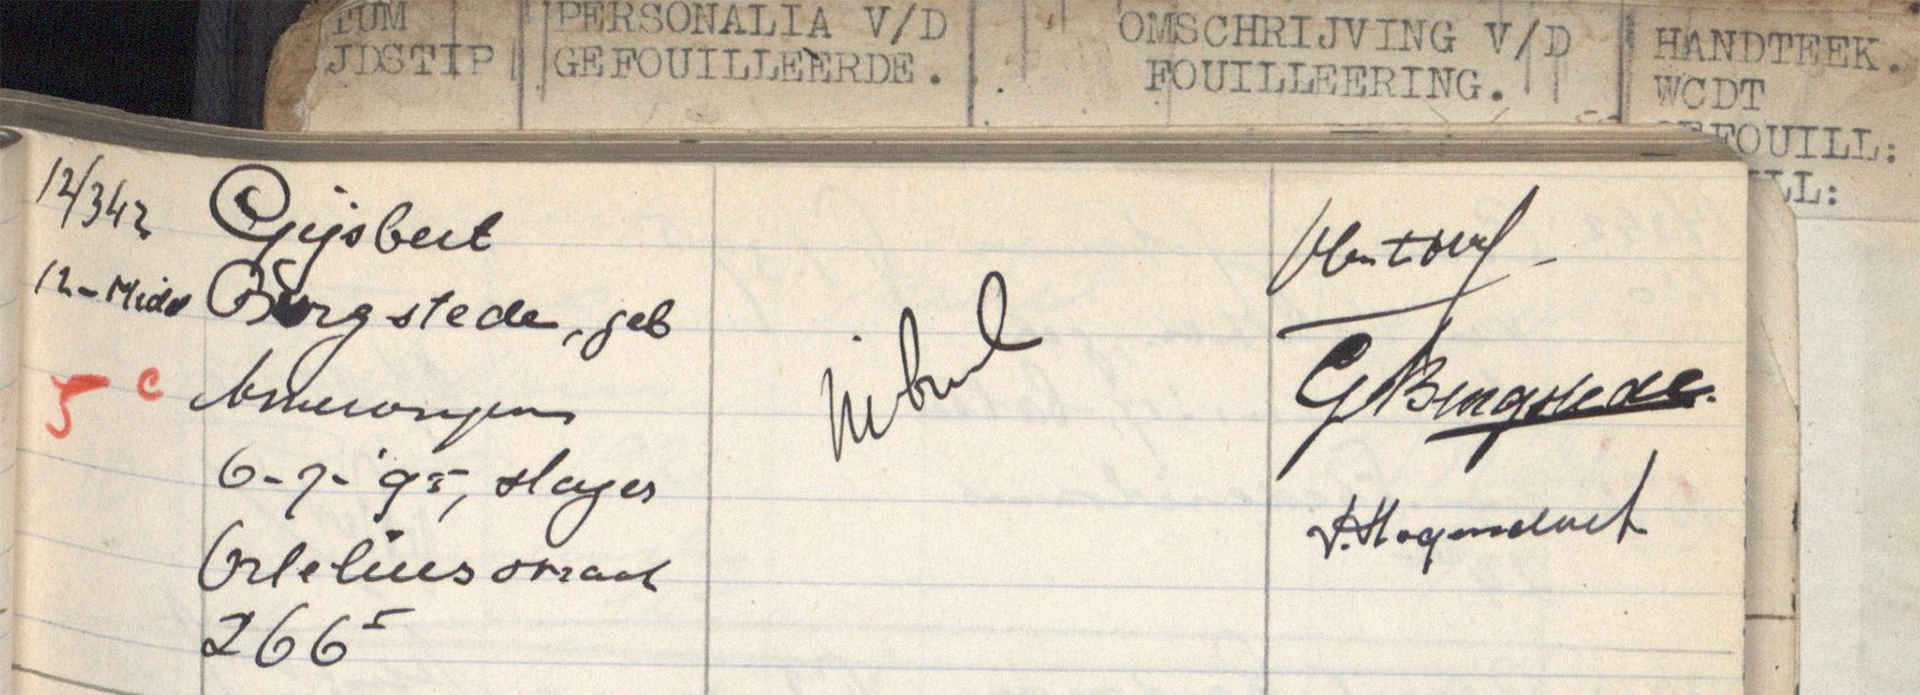 TUM
JDSTIP
PERSONALIA V/D
GEFOUILLEERDE.
OMSCHRIJVING V/D
FOUILLEERING.
HANDTEEK.
WCDT
GEFOUILL:
LL:
12/342
12-Midd
5 c
Gijsbert
Burgstede, geb
Amerongen
6-7-'95, slager
Orteliusstraat
266 5
G Burgstede.